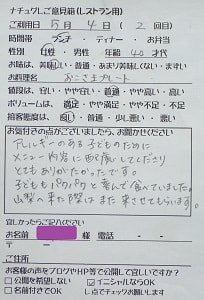 ナチュグレご意見箱(レストラン用)
ご利用日 5月4日(2回目)
時間帯 ランチ・ディナー・お弁当
性別 女性・男性 年齢 40才代
お味は、美味しい・普通・あまり美味しくない・まずい
お料理名 おこさまプレート
値段は、安い・やや安い・普通・やや高い・高い
ボリュームは、満足・やや満足・やや不足・不足
接客態度は、良い・普通・少し悪い・悪い
お気付きの点がございましたら、お聞かせください
アレルギーのある子どものために
メニュー内容に配慮してくださり
とてもありがたかったです。
子どももパクパクと喜んで食べていました。
山梨へ来た際はまた来させてもらいます。
宜しかったらご記入ください
お名前 様 電話
ご住所
お客様の声をブログやHP等で公開して宜しいですか?
□公開を希望しない ☑イニシャルならOK
□名前付きでOK レ点でチェックお願いします